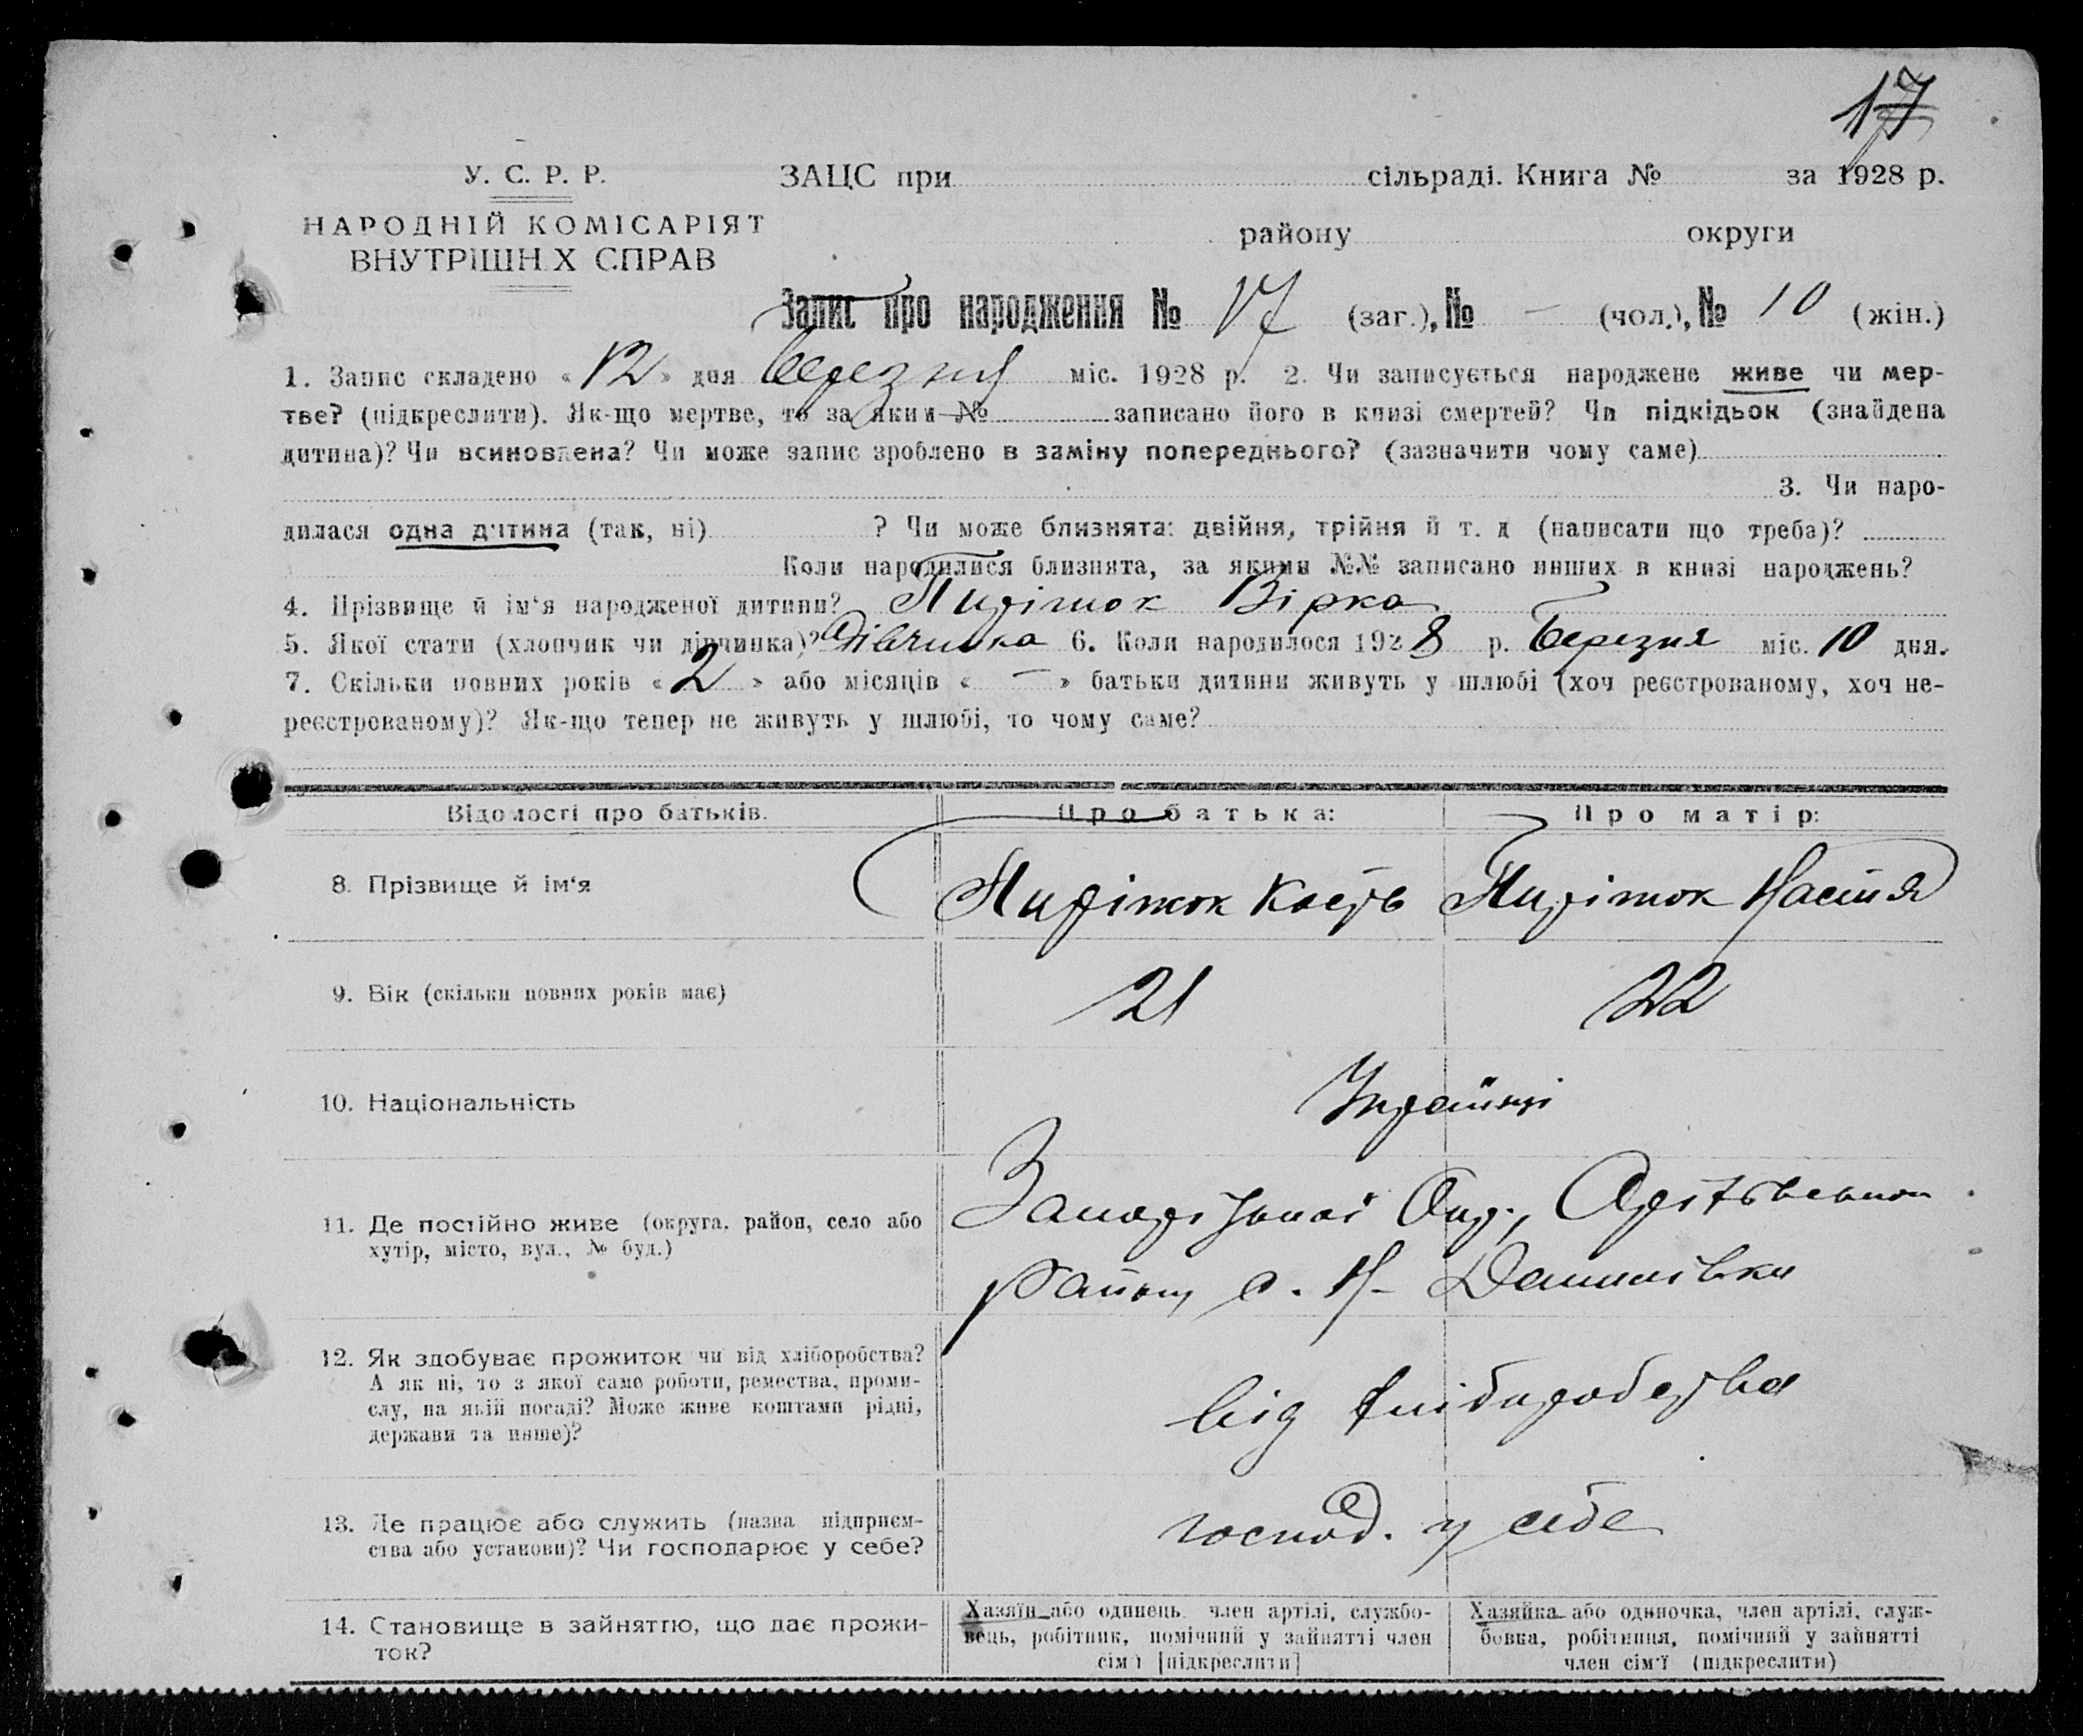 17
У. С. Р. Р.
НАРОДНІЙ КОМІСАРІЯТ
ВНУТРІШНІХ СПРАВ
ЗАЦС при сільраді. Книга № за 1928 р.
району округи
Запис про народження № 17 (заг.), № – (чол.), № 10 (жін.)
1. Запис складено «12» дня березня міс. 1928 р. 2. Чи записується народжене живе чи мер-
тве? (підкреслити). Як-що мертве, то за яким № записано його в книзі смертей? Чи підкідьок (знайдена
дитина)? Чи всиновлена? Чи може запис зроблено в заміну попереднього? (зазначити чому саме)
3. Чи наро-
дилася одна дитина (так, ні) ? Чи може близнята: двійня, трійня й т. д (написати що треба)?
Коли народилися близнята, за якими №№ записано инших в книзі народжень?
4. Прізвище й ім‘я народженої дитини? Вірка
5. Якої стати (хлопчик чи дівчинка)? Дівчинка 6. Коли народилося 1928 р. березня міс. 10 дня.
7. Скільки повних років «2» або місяців « – » батьки дитини живуть у шлюбі (хоч реєстрованому, хоч не-
реєстрованому)? Як-що тепер не живуть у шлюбі, то чому саме?
Відомості про батьків. Про батька: Про матір:
8. Прізвище й ім‘я Кость Настя
9. Вік (скільки повних років має) 21 22
10. Національність Українці
11. Де постійно живе (округа, район, село або
хутір, місто, вул., № буд.)
Запорізької Окр.,
району с. Н-
12. Як здобуває прожиток чи від хліборобства?
А як ні, то з якої саме роботи, ремества, проми-
слу, на якій посаді? Може живе коштами рідні,
держави та инше)?
від хліборобства
13. Де працює або служить (назва підприєм-
ства або установи)? Чи господарює у себе?
господ. у себе
14. Становище в зайняттю, що дає прожи-
ток?
Хазяїн або одинець член артілі, службо-
вець, робітник, помічний у зайнятті член
сім‘ї [підкреслити]
Хазяйка або одиночка, член артілі, служ-
бовка, робітниця, помічний у зайнятті
член сім‘ї (підкреслити)